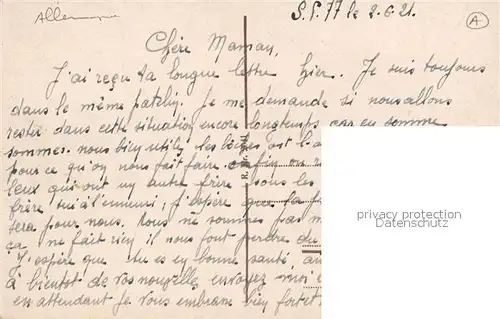 Allemagne
S.P. 77 le 2-6-21.
A
Chère Maman,
J'ai reçu ta longue lettre hier. Je suis toujours
dans le même patelin. Je me demande si nous allons
rester dans cette situation encore longtemps car en somme
sommes-nous bien utile, les
pour ce qu'on nous fait faire enfin on
ceux qui ont un autre frère sous les
frère qui a l'ennui, j'espère que la
sera pour nous. Nous ne sommes pas
ça ne fait rien il nous font perdre du
J'espère que tu es en bonne santé
à bientôt de vos nouvelles envoyez moi
en attendant Je vous embrasse bien fort et
privacy protection
Datenschutz